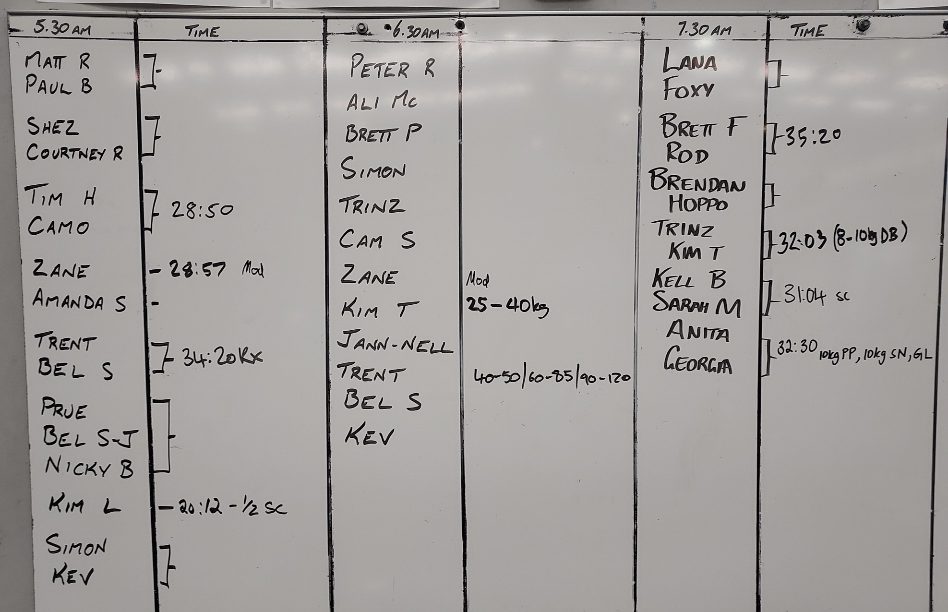 5.30AM TIME
MATT R
PAUL B
SHEZ
COURTNEY R
TIM H
CAMO
28:50
ZANE - 28:57 Mod
AMANDA S -
TRENT
BEL S
34:20 RX
PRUE
BEL S-J
NICKY B
KIM L - 20:12 - 1/2 SC
SIMON
KEV
6.30AM
PETER R
ALI Mc
BRETT P
SIMON
TRINZ
CAM S
ZANE Mod
KIM T 25-40kg
JANN-NELL
TRENT 40-50/60-85/90-120
BEL S
KEV
7.30AM TIME
LANA
FOXY
BRETT F
ROD
35:20
BRENDAN
HOPPO
TRINZ
KIM T
32:03 (8-10kg DB)
KELL B
SARAH M
31:04 SC
ANITA
GEORGIA
32:30 10kg PP, 10kg SN, GL